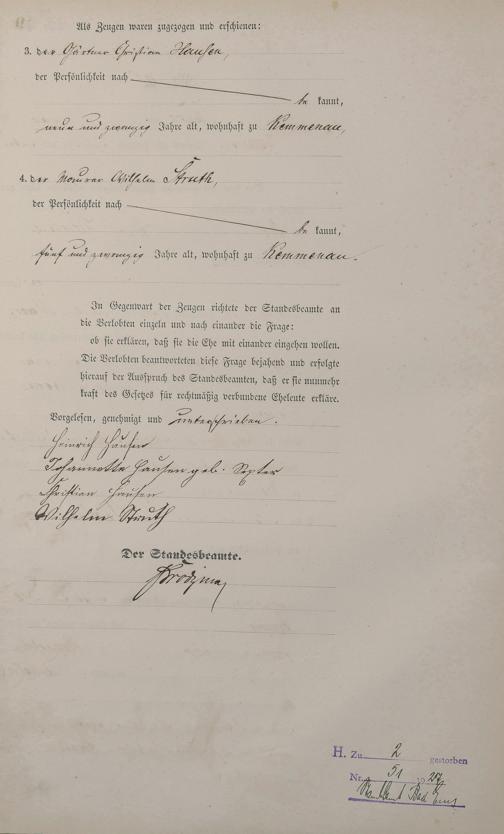 Als Zeugen waren zugezogen und erschienen:
3. der Gärtner Christian Hausen,
der Persönlichkeit nach
be kannt,
neun und zwanzig Jahre alt, wohnhaft zu Kemmenau,
4. der Maurer Wilhelm Struth,
der Persönlichkeit nach
be kannt,
fünf und zwanzig Jahre alt, wohnhaft zu Kemmenau.
In Gegenwart der Zeugen richtete der Standesbeamte an
die Verlobten einzeln und nach einander die Frage:
ob sie erklären, daß sie die Ehe mit einander eingehen wollen.
Die Verlobten beantworteten diese Frage bejahend und erfolgte
hierauf der Ausspruch des Standesbeamten, daß er sie nunmehr
kraft des Gesetzes für rechtmäßig verbundene Eheleute erkläre.
Vorgelesen, genehmigt und unterschrieben.
Heinrich Hausen
Johannette Hausen geb.
Christian Hausen
Wilhelm Struth
Der Standesbeamte.
H. Zu 2 gestorben
Nr. 51 19
Standesamt Bad Ems